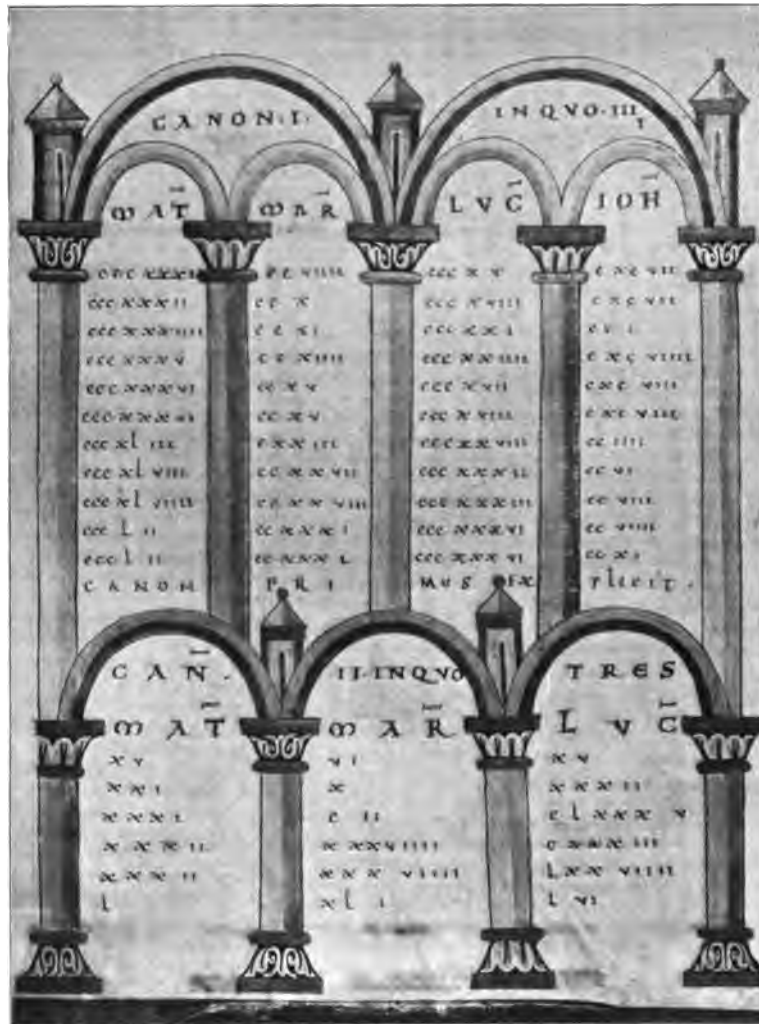 CANON·I· INQVO·IIII
MAT̅ MAR̅ LVC̅ IOH̅
cc viiii ccc x v c xc vii
ccc xxxii cc x c xc vii
ccc xxxiiii cc xi ccc xx i
ccc xxx v cc xiiii ccc xx iiii c xc viiii
ccc xxx vi cc x v ccc x vii c xc viii
cc x v ccc x viiii c xc viii
ccc xl iii c xx iii ccc xx viiii cc iiii
ccc xl viii cc xx vii ccc xxx ii cc vi
ccc xl viiii cc xx viii ccc xxx iii cc viii
ccc l ii cc xxx i ccc xxx vi cc viiii
ccc l ii cc xxx i ccc xxx vi cc x i
CANON PRI MUS EX plicit.
CAN̅. II·INQVO TRES
MAT̅ MAR̅ LVC̅
x v vi x v
xx i x xxx ii
xxx i c ii c l xxx v
xxx ii xxx viiii c xxx iii
xxx ii xxx viiii lxx viiii
l xl i l vi